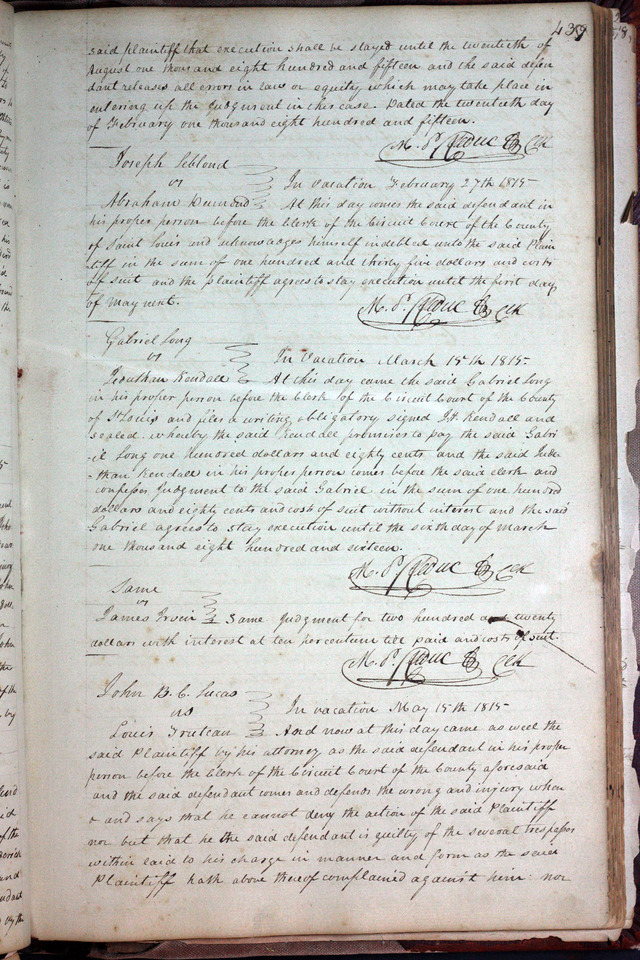 439
said plaintiff that execution shall be stayed until the twentieth of
August one thousand eight hundred and fifteen and the said defen
dant releases all errors in law or equity which may take place in
entering up the Judgment in this case. Dated the twentieth day
of February one thousand eight hundred and fifteen.
M. P. Leduc Clk
Joseph Leblond
vs
In vacation February 27th 1815
Abraham At this day comes the said defendant in
his proper person before the Clerk of the Circuit Court of the County
of Saint Louis and acknowledges himself indebted unto the said Plain
tiff in the sum of one hundred and thirty five dollars and costs
of suit and the plaintiff agrees to stay execution until the first day
of may next.
M. P. Leduc Clk
Gabriel Long
vs
In Vacation March 15th 1815
Jonathan Kendall At this day came the said Gabriel Long
in his proper person before the Clerk of the Circuit Court of the County
of St Louis and files a writing obligatory signed Jt. Kendall and
sealed. whereby the said Kendall promises to pay the said Gabri-
-el Long one Hundred dollars and eighty cents and the said
-than Kendall in his proper person comes before the said clerk and
confesses Judgment to the said Gabriel in the sum of one hundred
dollars and eighty cents and cost of suit without interest and the said
Gabriel agrees to stay execution until the sixth day of March
one thousand eight hundred and sixteen.
M. P. Leduc Clk
Same
vs
James Irvin Same Judgment for two hundred and twenty
dollars with interest at ten per centum till paid and costs of suit.
M. P. Leduc Clk
John B. C. Lucas
vs
In vacation May 15th 1815
Louis And now at this day came as well the
said Plaintiff by his attorney as the said defendant in his proper
person before the Clerk of the Circuit Court of the County aforesaid
and the said defendant comes and defends the wrong and injury when
& and says that he cannot deny the action of the said Plaintiff
nor but that he the said defendant is guilty of the several trespasses
within laid to his charge in manner and form as the said
Plaintiff hath above thereof complained against him: nor